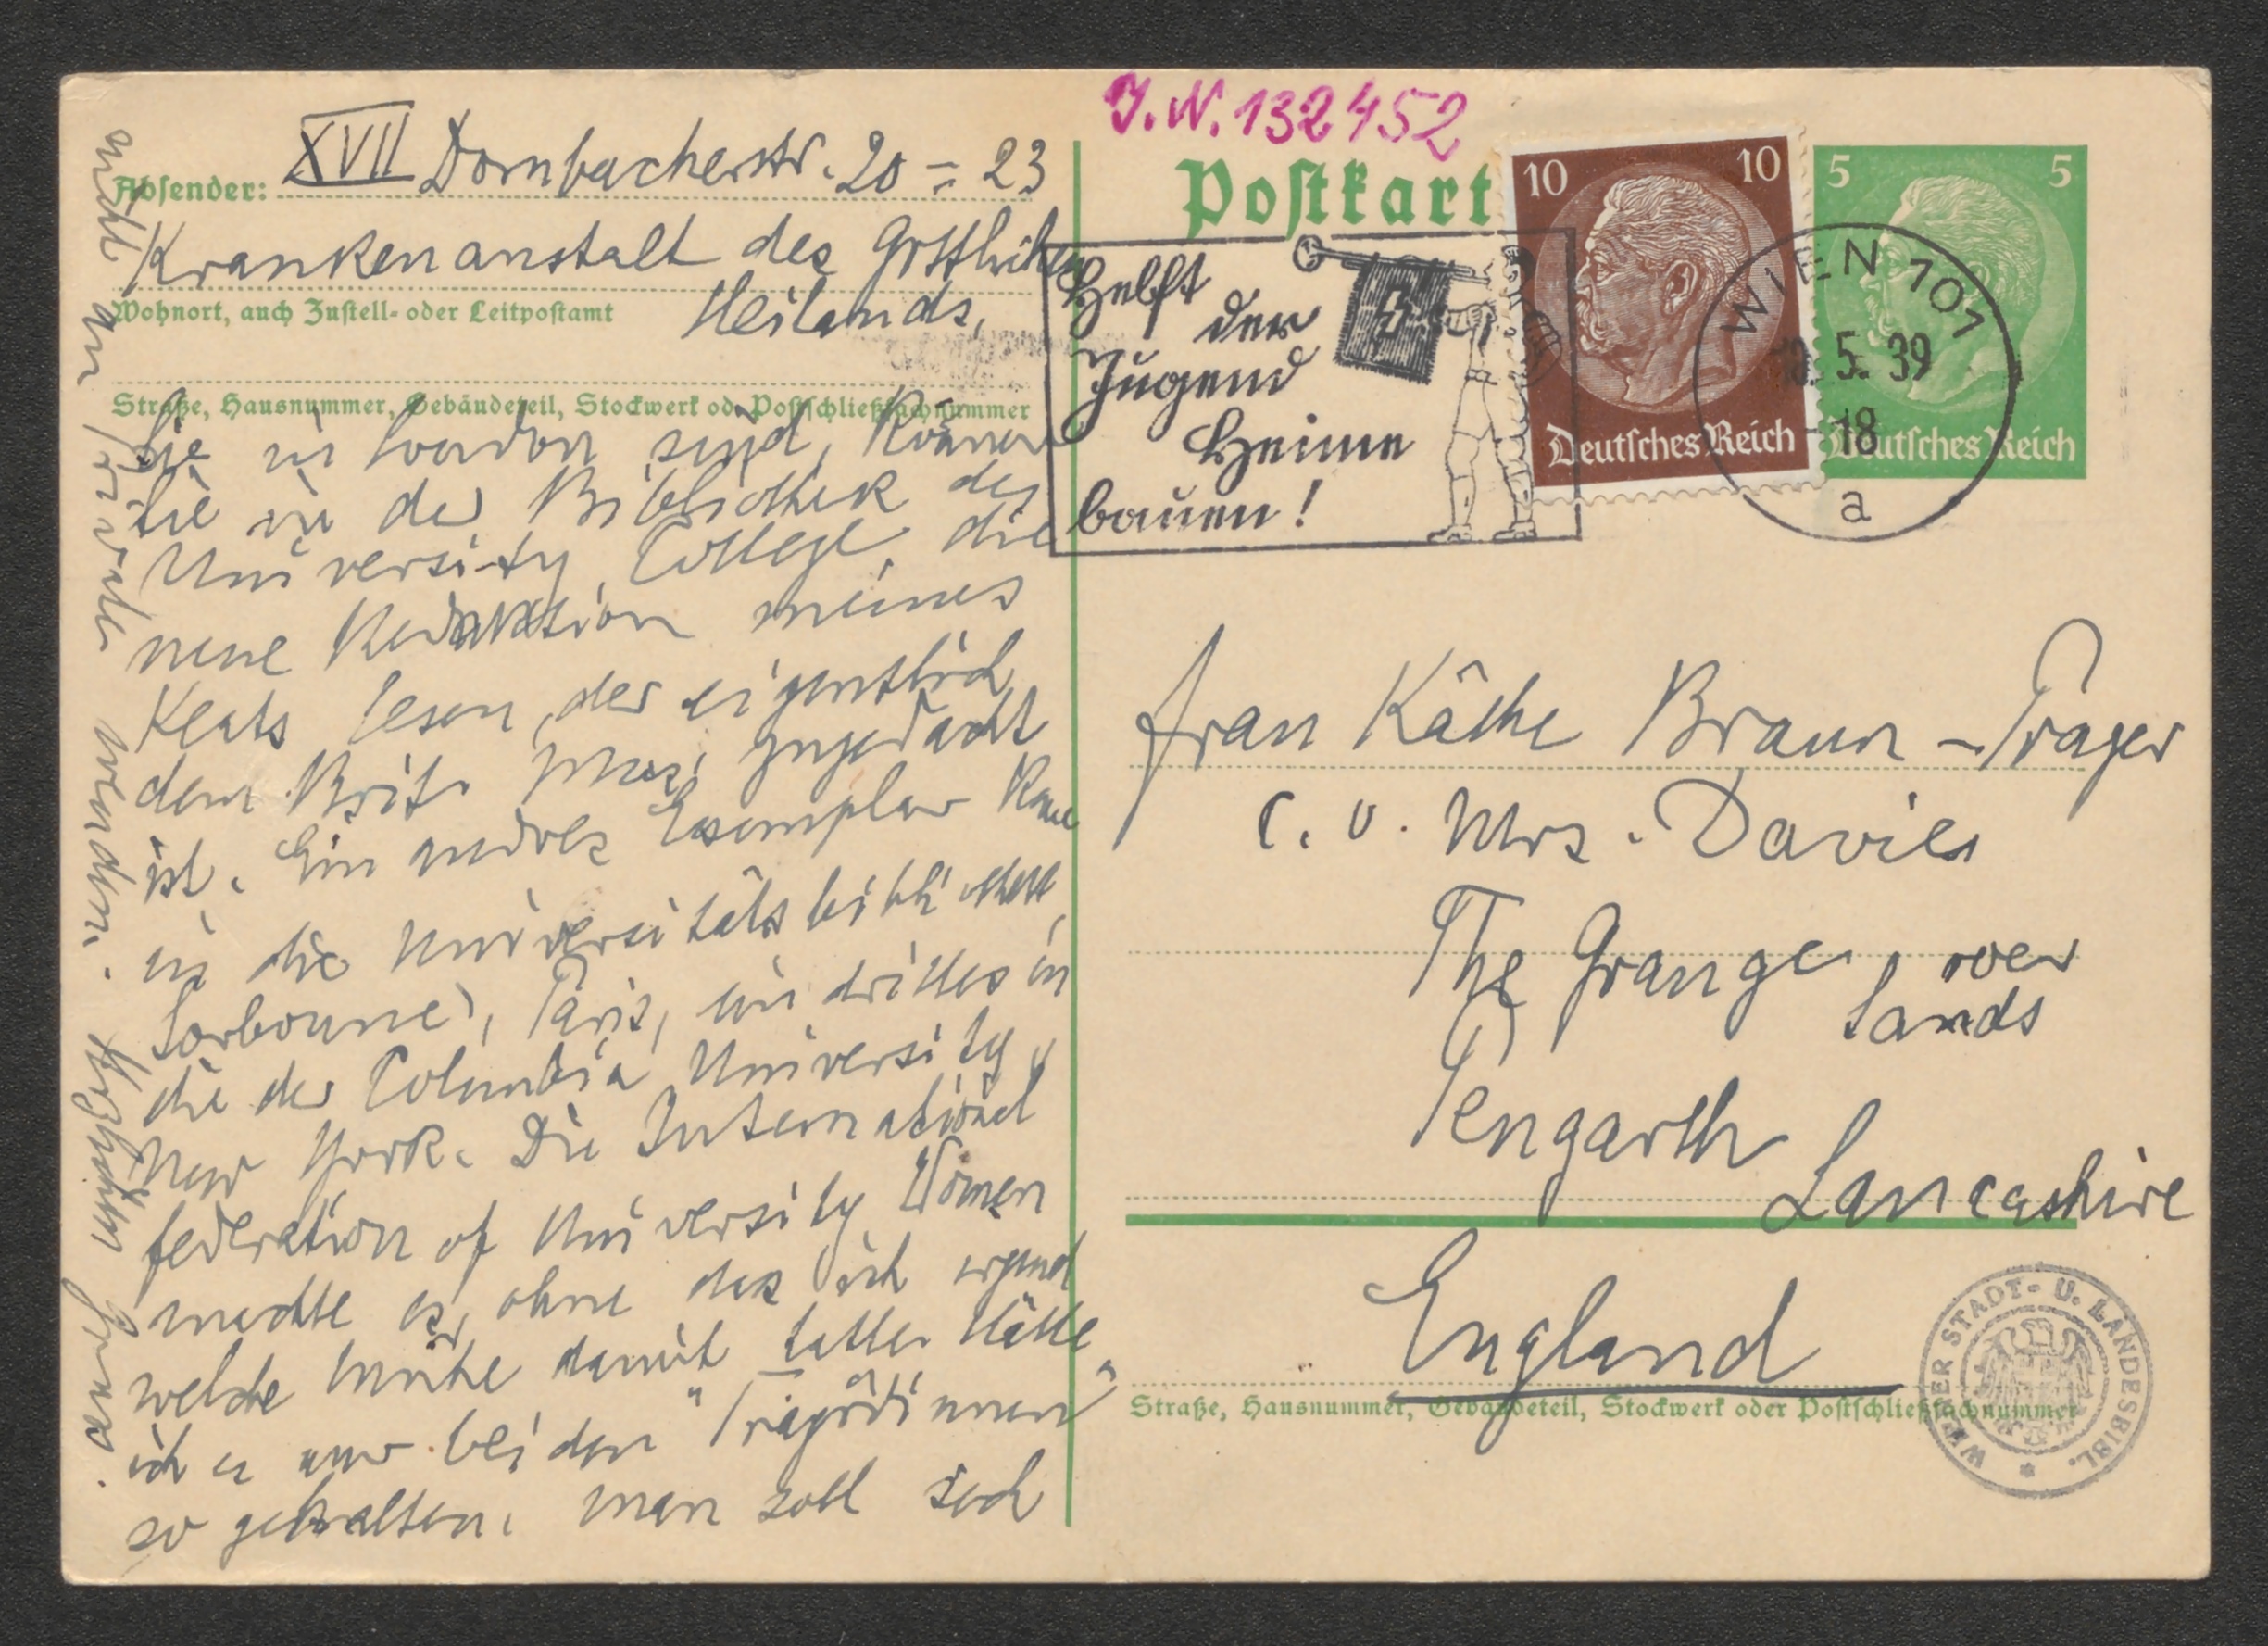 J. N. 132452
Absender: XVII Dornbacherstr. 20 – 23
Krankenanstalt des Göttlichen
Wohnort, auch Zustell- oder Leitpostamt
Heilands,
Straße, Hausnummer, Gebäudeteil, Stockwerk od. Postschließfachnummer
Sie in London sind, können
Sie in der Bibliothek des
University College, die
neue Redaktion meines
Keats lesen, der eigentlich
dem Brit. Mus. zugedacht
ist. Ein andres Exemplar kam
in die Universitätsbibliothek
Sorbonne, Paris, ein drittes in
die der Columbia University,
New York. Die International
federation of University Women
machte es, ohne das ich irgend
welche Mühe damit hatte. Hätte
ich es nur bei den "Tragödinnen"
so gehalten. Man soll sich
nicht an Private wenden. Herzlichen Gruss.
Postkart
Helft
der
Jugend
Heime
bauen!
10 10
Deutsches Reich
5 5
Deutsches Reich
WIEN 101
5. 39
18
a
Frau Käthe Braun-Prager
c. o. Mrs. Davies
The Grange over
Sands
Pengarth
Lancashire
England
Straße, Hausnummer, Gebäudeteil, Stockwerk oder Postschließfachnummer
WIENER STADT- U. LANDESBIBL.